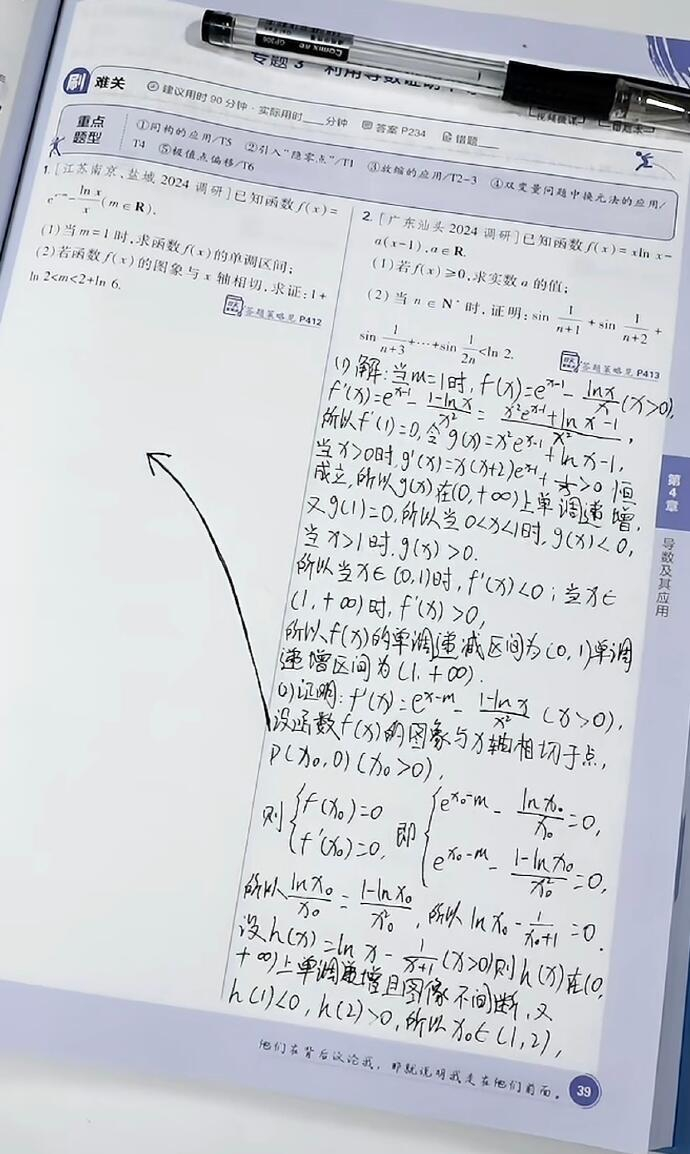 专题3 利用导数证明不
Comix
GP306
视频微课
错题本
刷 难关
建议用时90分钟·实际用时____分钟 答案P234 错题____
重点
题型
①同构的应用/T5 ②引入“隐零点”/T1 ③放缩的应用/T2-3 ④双变量问题中换元法的应用/
T4 ⑤极值点偏移/T6
1. [江苏南京、盐城2024调研]已知函数f(x)=
e^{x-m}-\frac{ln x}{x}(m∈R).
(1)当m=1时,求函数f(x)的单调区间;
(2)若函数f(x)的图象与x轴相切,求证:1+
ln 2<m<2+ln 6.
答题策略见P412
2. [广东汕头2024调研]已知函数f(x)=xln x-
a(x-1),a∈R.
(1)若f(x)≥0,求实数a的值;
(2)当n∈N*时,证明:sin \frac{1}{n+1}+sin \frac{1}{n+2}+
sin \frac{1}{n+3}+…+sin \frac{1}{2n}<ln 2.
答题策略见P413
(1)解:当m=1时,f(x)=e^{x-1}-\frac{lnx}{x}(x>0),
f'(x)=e^{x-1}-\frac{1-ln x}{x²}=\frac{x²e^{x-1}+ln x-1}{x²},
所以f'(1)=0,令g(x)=x²e^{x-1}+ln x-1,
当x>0时,g'(x)=x(x+2)e^{x-1}+\frac{1}{x}>0 恒
成立,所以g(x)在(0,+∞)上单调递增,
又g(1)=0,所以当0<x<1时,g(x)<0,
当x>1时,g(x)>0.
所以当x∈(0,1)时,f'(x)<0;当x∈
(1,+∞)时,f'(x)>0,
所以f(x)的单调递减区间为(0,1)单调
递增区间为(1,+∞).
(2)证明:f'(x)=e^{x-m}-\frac{1-ln x}{x²}(x>0),
设函数f(x)的图象与x轴相切于点,
P(x₀,0)(x₀>0),
则{f(x₀)=0 f'(x₀)=0, 即{e^{x₀-m}-\frac{ln x₀}{x₀}=0, e^{x₀-m}-\frac{1-ln x₀}{x₀²}=0,
所以\frac{ln x₀}{x₀}=\frac{1-ln x₀}{x₀²},所以ln x₀-\frac{1}{x₀+1}=0.
设h(x)=ln x-\frac{1}{x+1}(x>0)则h(x)在(0,
+∞)上单调递增且图像不间断,又
h(1)<0,h(2)>0,所以x₀∈(1,2),
第4章
导数及其应用
他们在背后议论我,那就说明我走在他们前面。
39